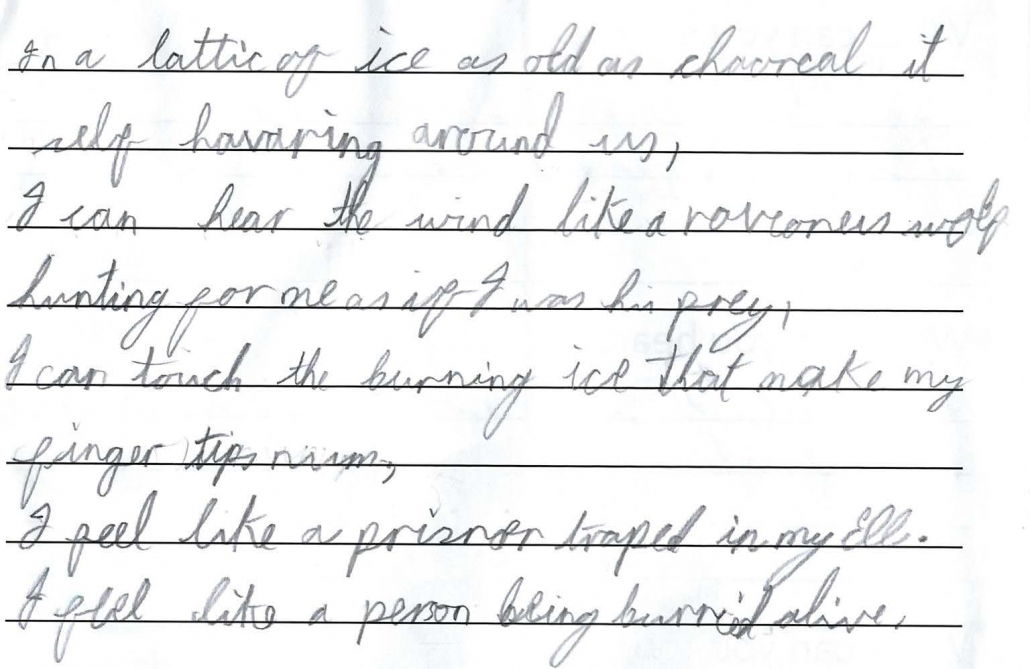 In a lattic of ice as old as chaoreal it
self havaring around us,
I can hear the wind like a rovconeus wolf
hunting for me as if I was his prey,
I can touch the burning ice that make my
finger tips num,
I feel like a prisner traped in my Ell.
I feel like a person being burried alive.